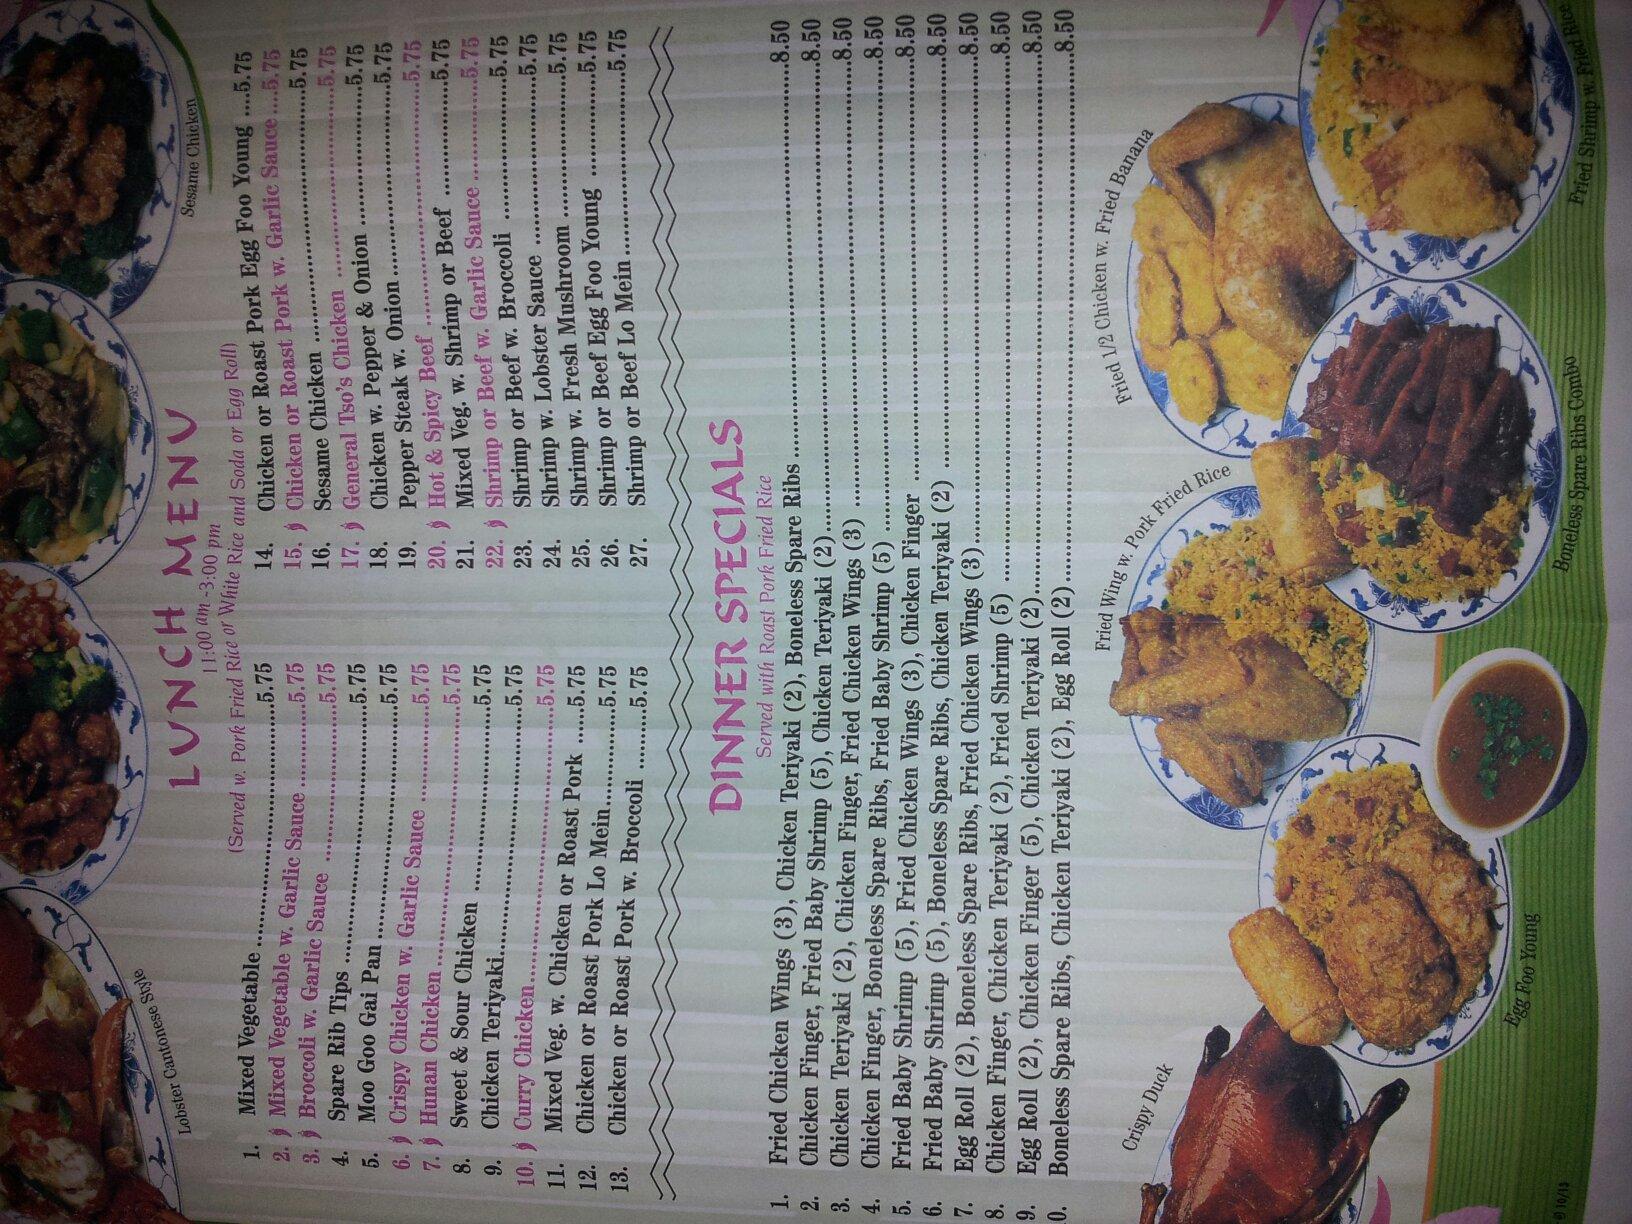 Sesame Chicken
Lobster Cantonese Style
LUNCH MENU
11:00 am -3:00 pm
(Served w. Pork Fried Rice or White Rice and Soda or Egg Roll)
1. Mixed Vegetable 5.75
2. Mixed Vegetable w. Garlic Sauce 5.75
3. Broccoli w. Garlic Sauce 5.75
4. Spare Rib Tips 5.75
5. Moo Goo Gai Pan 5.75
6. Crispy Chicken w. Garlic Sauce 5.75
7. Hunan Chicken 5.75
8. Sweet & Sour Chicken 5.75
9. Chicken Teriyaki 5.75
10. Curry Chicken 5.75
11. Mixed Veg. w. Chicken or Roast Pork 5.75
12. Chicken or Roast Pork Lo Mein 5.75
13. Chicken or Roast Pork w. Broccoli 5.75
14. Chicken or Roast Pork Egg Foo Young 5.75
15. Chicken or Roast Pork w. Garlic Sauce 5.75
16. Sesame Chicken 5.75
17. General Tso's Chicken 5.75
18. Chicken w. Pepper & Onion 5.75
19. Pepper Steak w. Onion 5.75
20. Hot & Spicy Beef 5.75
21. Mixed Veg. w. Shrimp or Beef 5.75
22. Shrimp or Beef w. Garlic Sauce 5.75
23. Shrimp or Beef w. Broccoli 5.75
24. Shrimp w. Lobster Sauce 5.75
25. Shrimp w. Fresh Mushroom 5.75
26. Shrimp or Beef Egg Foo Young 5.75
27. Shrimp or Beef Lo Mein 5.75
DINNER SPECIALS
Served with Roast Pork Fried Rice
1. Fried Chicken Wings (3), Chicken Teriyaki (2), Boneless Spare Ribs 8.50
2. Chicken Finger, Fried Baby Shrimp (5), Chicken Teriyaki (2) 8.50
3. Chicken Teriyaki (2), Chicken Finger, Fried Chicken Wings (3) 8.50
4. Chicken Finger, Boneless Spare Ribs, Fried Baby Shrimp (5) 8.50
5. Fried Baby Shrimp (5), Fried Chicken Wings (3), Chicken Finger 8.50
6. Fried Baby Shrimp (5), Boneless Spare Ribs, Chicken Teriyaki (2) 8.50
7. Egg Roll (2), Boneless Spare Ribs, Fried Chicken Wings (3) 8.50
8. Chicken Finger, Chicken Teriyaki (2), Fried Shrimp (5) 8.50
9. Egg Roll (2), Chicken Finger (5), Chicken Teriyaki (2) 8.50
0. Boneless Spare Ribs, Chicken Teriyaki (2), Egg Roll (2) 8.50
Crispy Duck
Fried Wing w. Pork Fried Rice
Fried 1/2 Chicken w. Fried Banana
Egg Foo Young
Boneless Spare Ribs Combo
Fried Shrimp w. Fried Rice
© 10/13